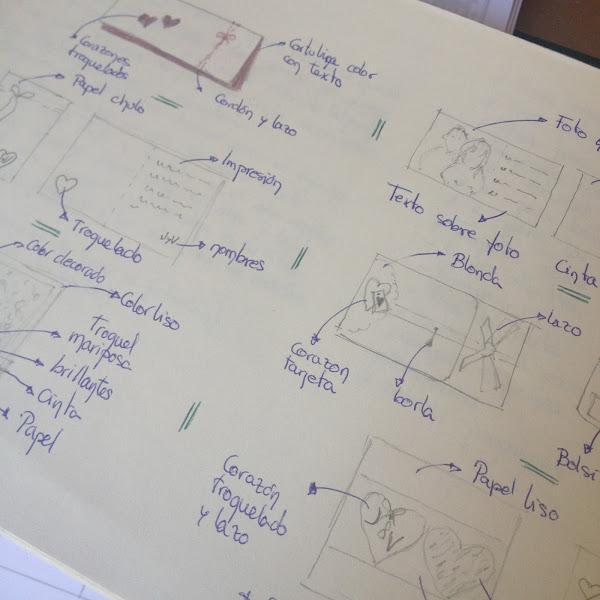 Corazones
troquelados
Cartulina color
con texto
Cordón y lazo
Papel chulo
Impresión
Troquelado
nombres
Foto
Texto sobre foto
Cinta
Blonda
Lazo
Corazón
tarjeta
borla
Color decorado
Color liso
troquel
mariposa
brillantes
Cinta
Papel
Corazón
troquelado
y lazo
Papel liso